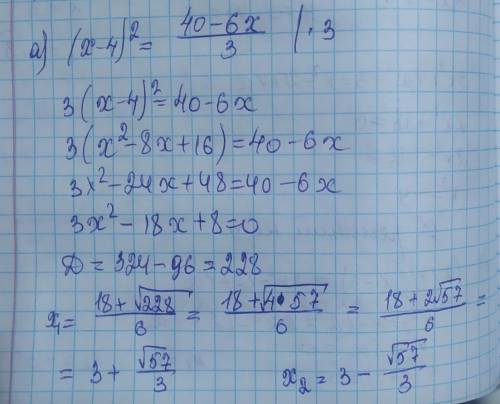 а) (x-4)² = (40-6x)/3 |·3
3(x-4)² = 40-6x
3(x²-8x+16) = 40-6x
3x²-24x+48 = 40-6x
3x²-18x+8=0
D = 324-96 = 228
x₁ = (18+√228)/6 = (18+√(4·57))/6 = (18+2√57)/6 =
= 3 + √57/3 x₂ = 3 - √57/3